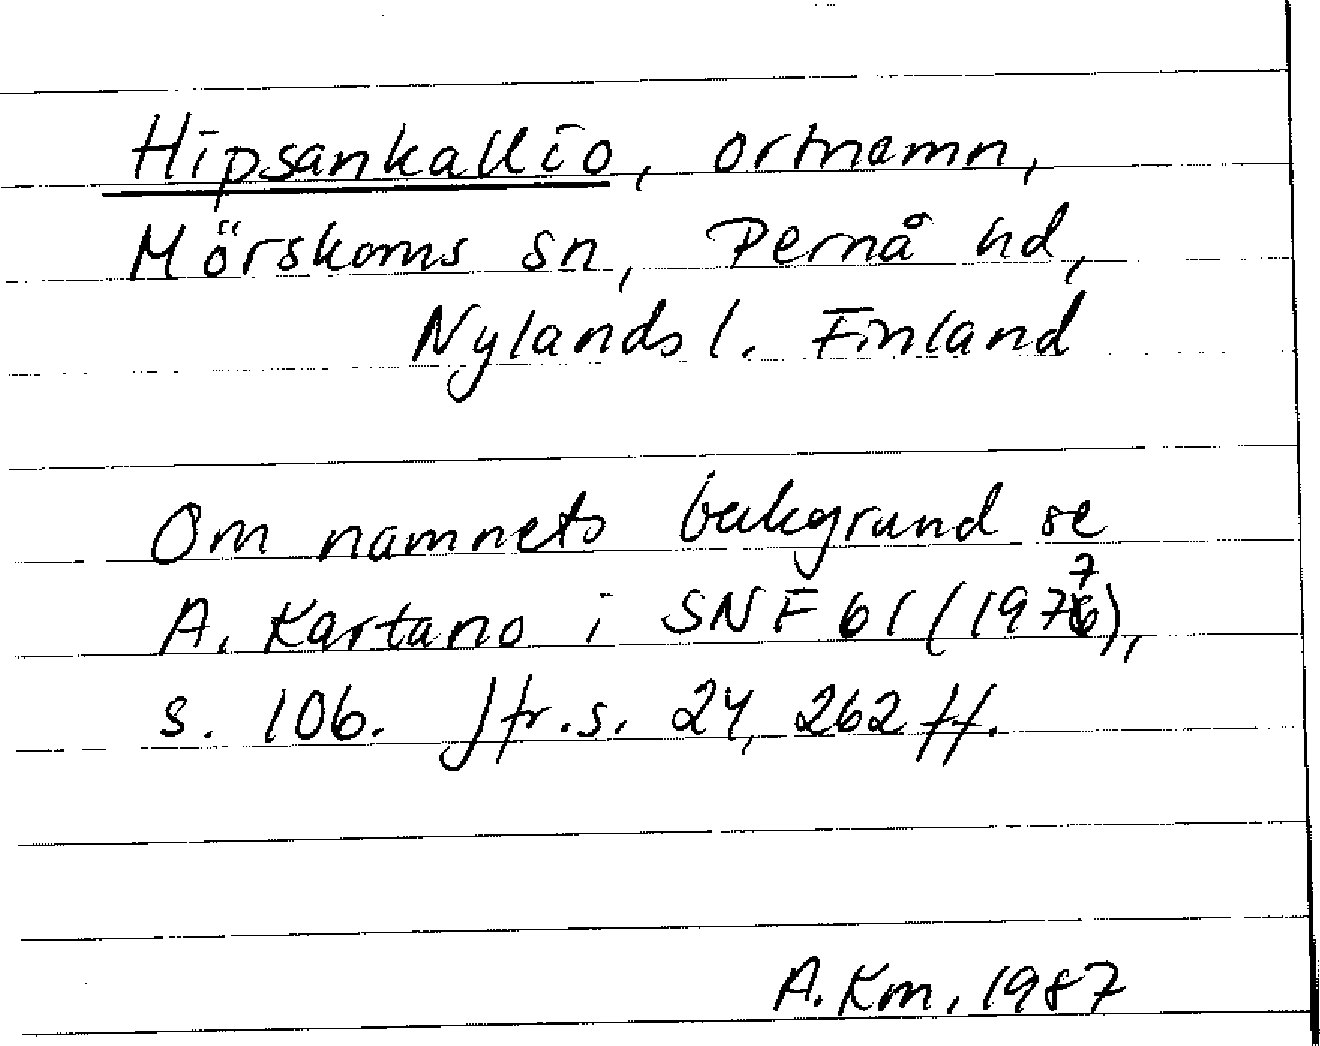 Hipsankallio, ortnamn,
Mörskoms sn, Pernå hd,
Nylands l. Finland
Om namnets bakgrund se
A. Kartano i SNF 61 (1977),
s. 106. Jfr. s. 24, 262 ff.
A. Km, 1987